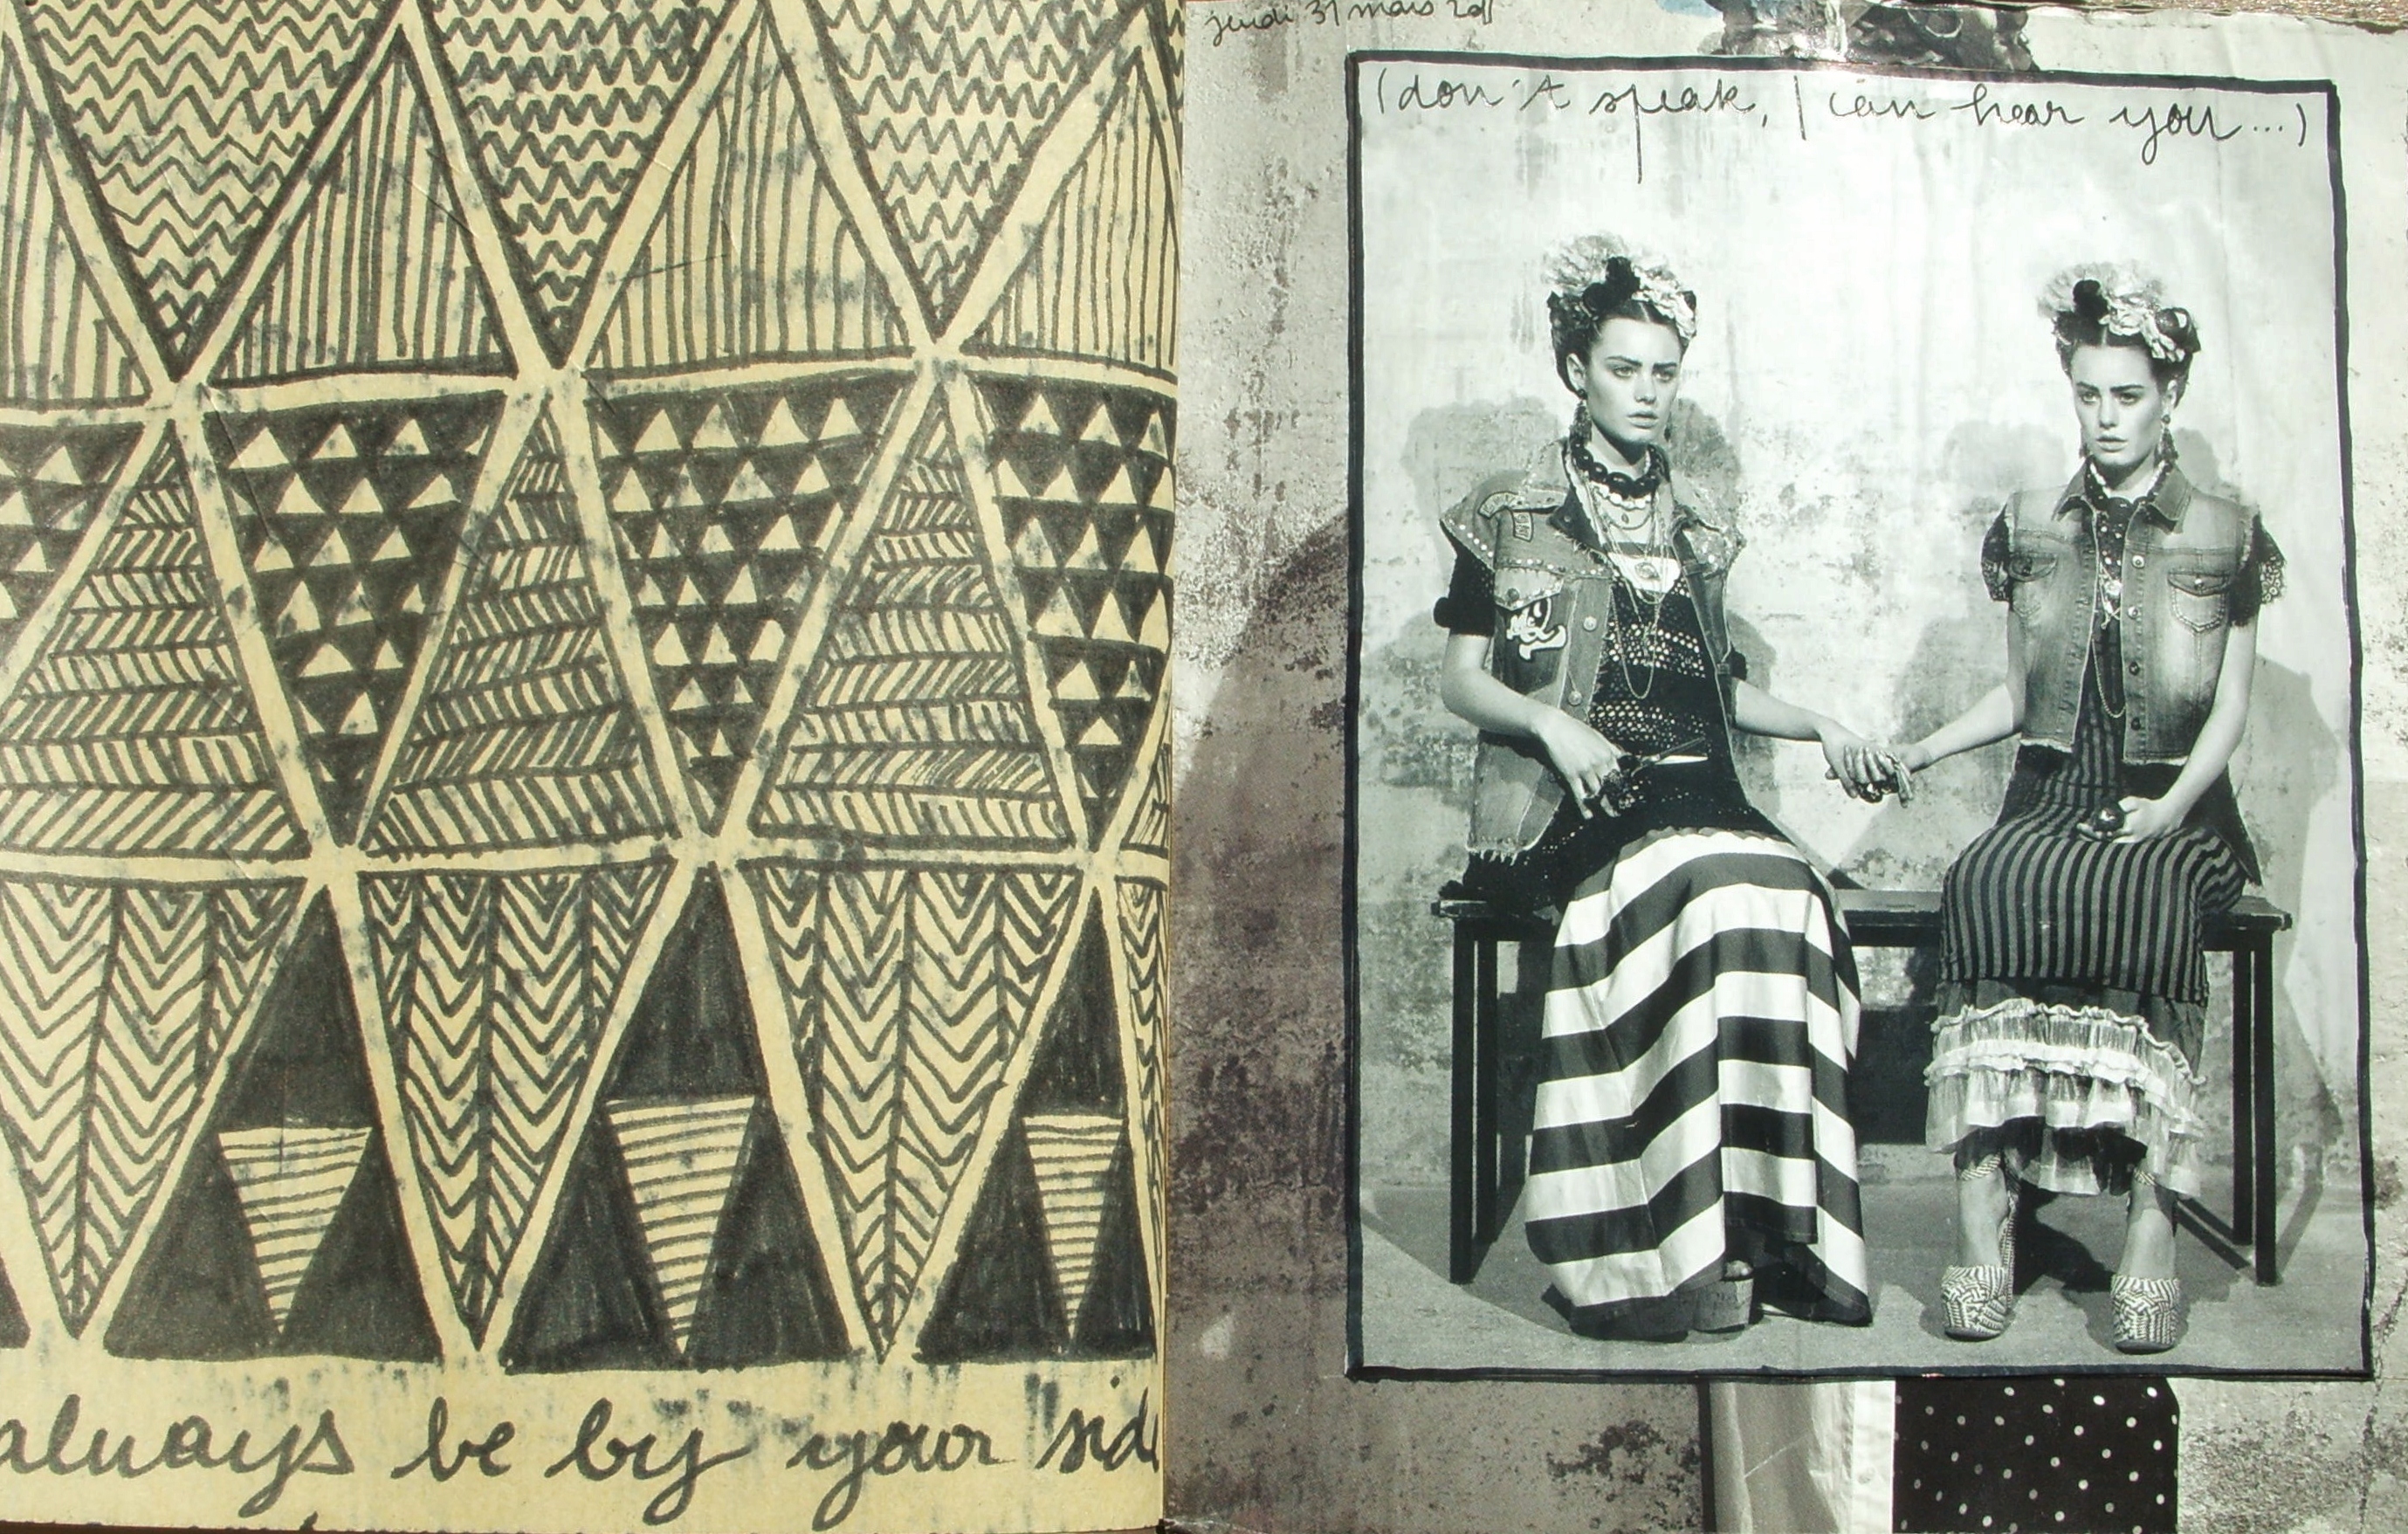 always be by your side
jeudi 31 mars 2011
(don't speak, I can hear you...)